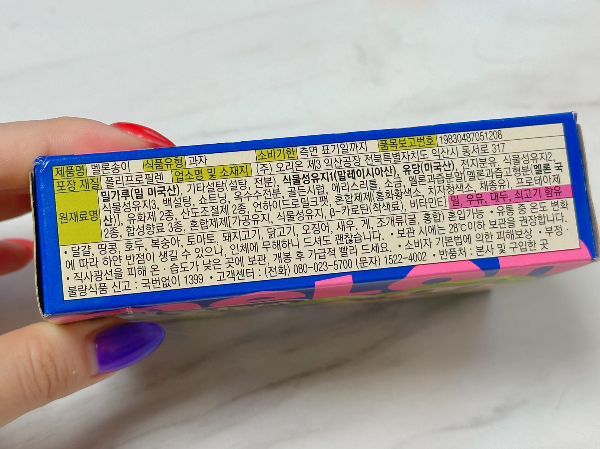 제품명 멜론송이 식품유형 과자 소비기한 측면 표기일까지 품목보고번호 19830487051208
포장 재질 폴리프로필렌 업소명 및 소재지 (주) 오리온 제3 익산공장 전북특별자치도 익산시 동서로 317
원재료명 밀가루(밀 미국산), 기타설탕(설탕, 전분), 식물성유지1(말레이시아산), 유당(미국산), 전지분유, 식물성유지2,
식물성유지3, 백설탕, 쇼트닝, 옥수수전분, 골든시럽, 에리스리톨, 소금, 멜론과즙분말(멜론과즙고형분)
2종), 유화제 2종, 산도조절제 2종, 언하이드로밀크팻, 혼합제제(홍화황색소, 치자청색소, 제증유), 프로테아제
2종, 합성향료 3종, 혼합제제(가공유지, 식물성유지, β-카로틴(착색료), 비타민E) 밀, 우유, 대두, 쇠고기 함유
• 달걀, 땅콩, 호두, 복숭아, 토마토, 돼지고기, 닭고기, 오징어, 새우, 게, 조개류(굴, 홍합) 혼입가능 • 유통 중 온도 변화
에 따라 하얀 반점이 생길 수 있으나, 인체에 무해하니 드셔도 괜찮습니다. • 보관 시에는 28℃이하 보관을 권장합니다.
• 직사광선을 피해 온·습도가 낮은 곳에 보관, 개봉 후 가급적 빨리 드세요. • 소비자 기본법에 의한 피해보상 • 부정·
불량식품 신고 : 국번없이 1399 • 고객센터 : (전화) 080-023-5700 (문자) 1522-4002 • 반품처 : 본사 및 구입한 곳